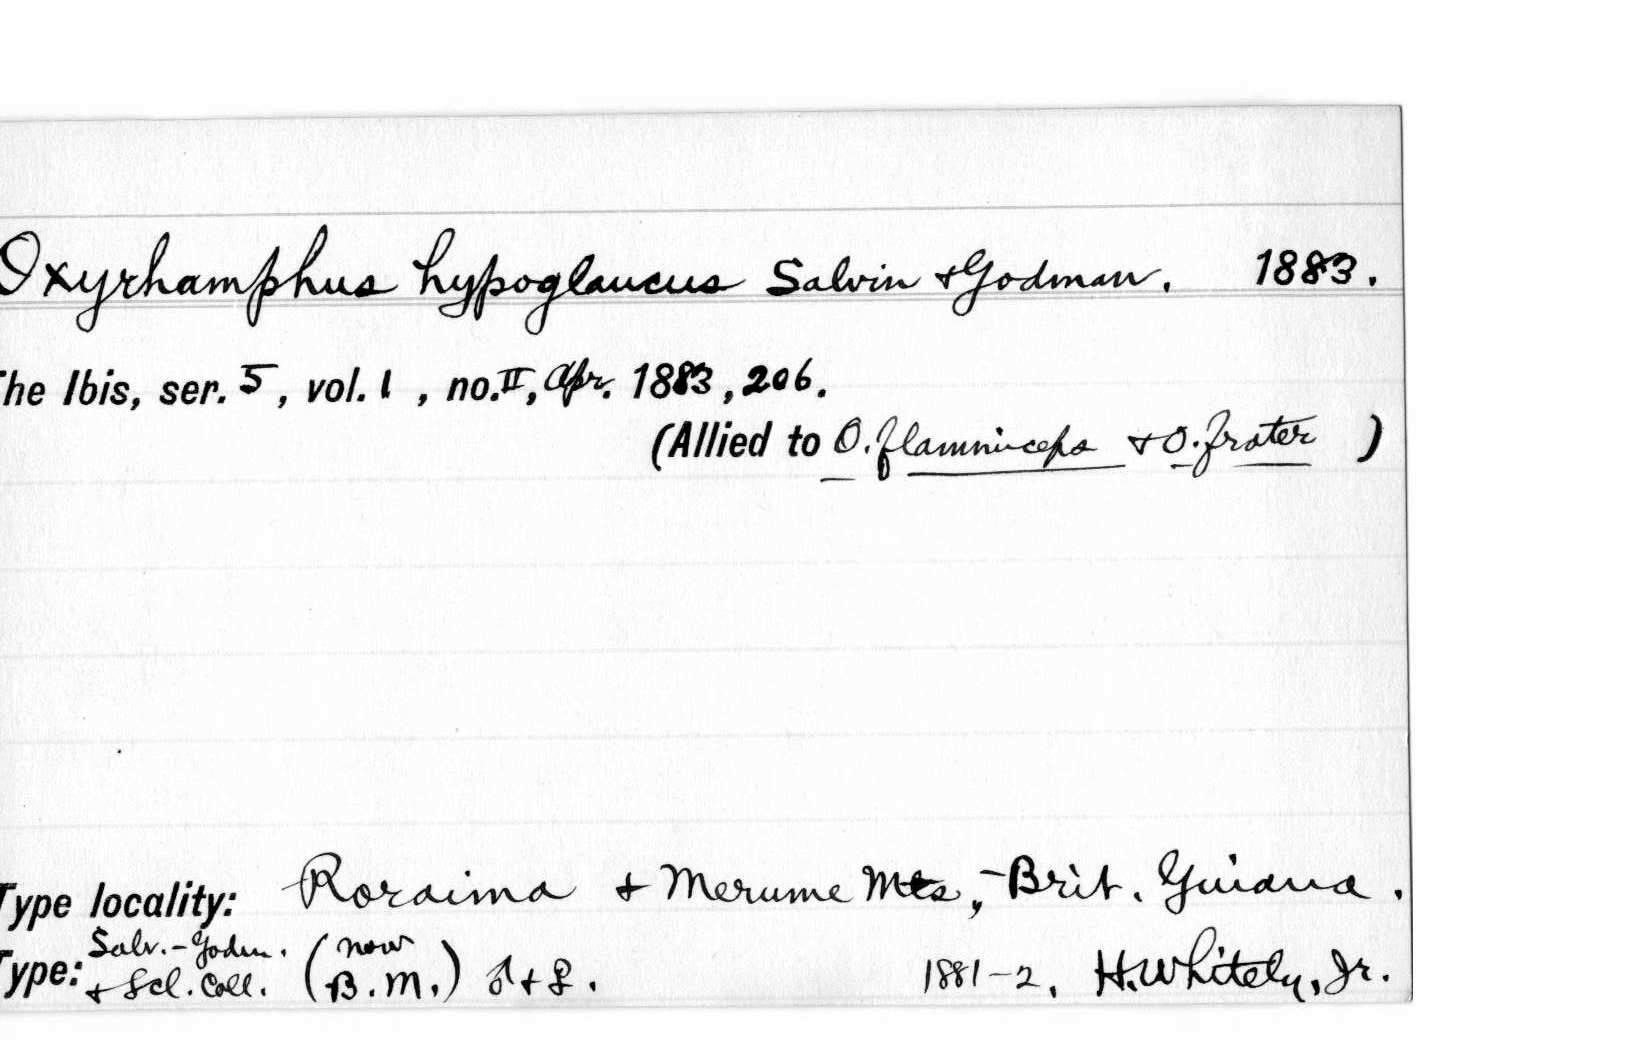 Oxyrhamphus hypoglaucus Salvin + Godman. 1883.
The Ibis, ser. 5, vol. 1, no. II, Apr. 1883, 206.
(Allied to O. flammiceps + O. frater)
Type locality: Roraima + Merume Mts., - Brit. Guiana.
Type: Salv.-Godm. + Scl. Coll. (now B.M.) ♂ + ♀. 1881-2. H. Whitely, Jr.